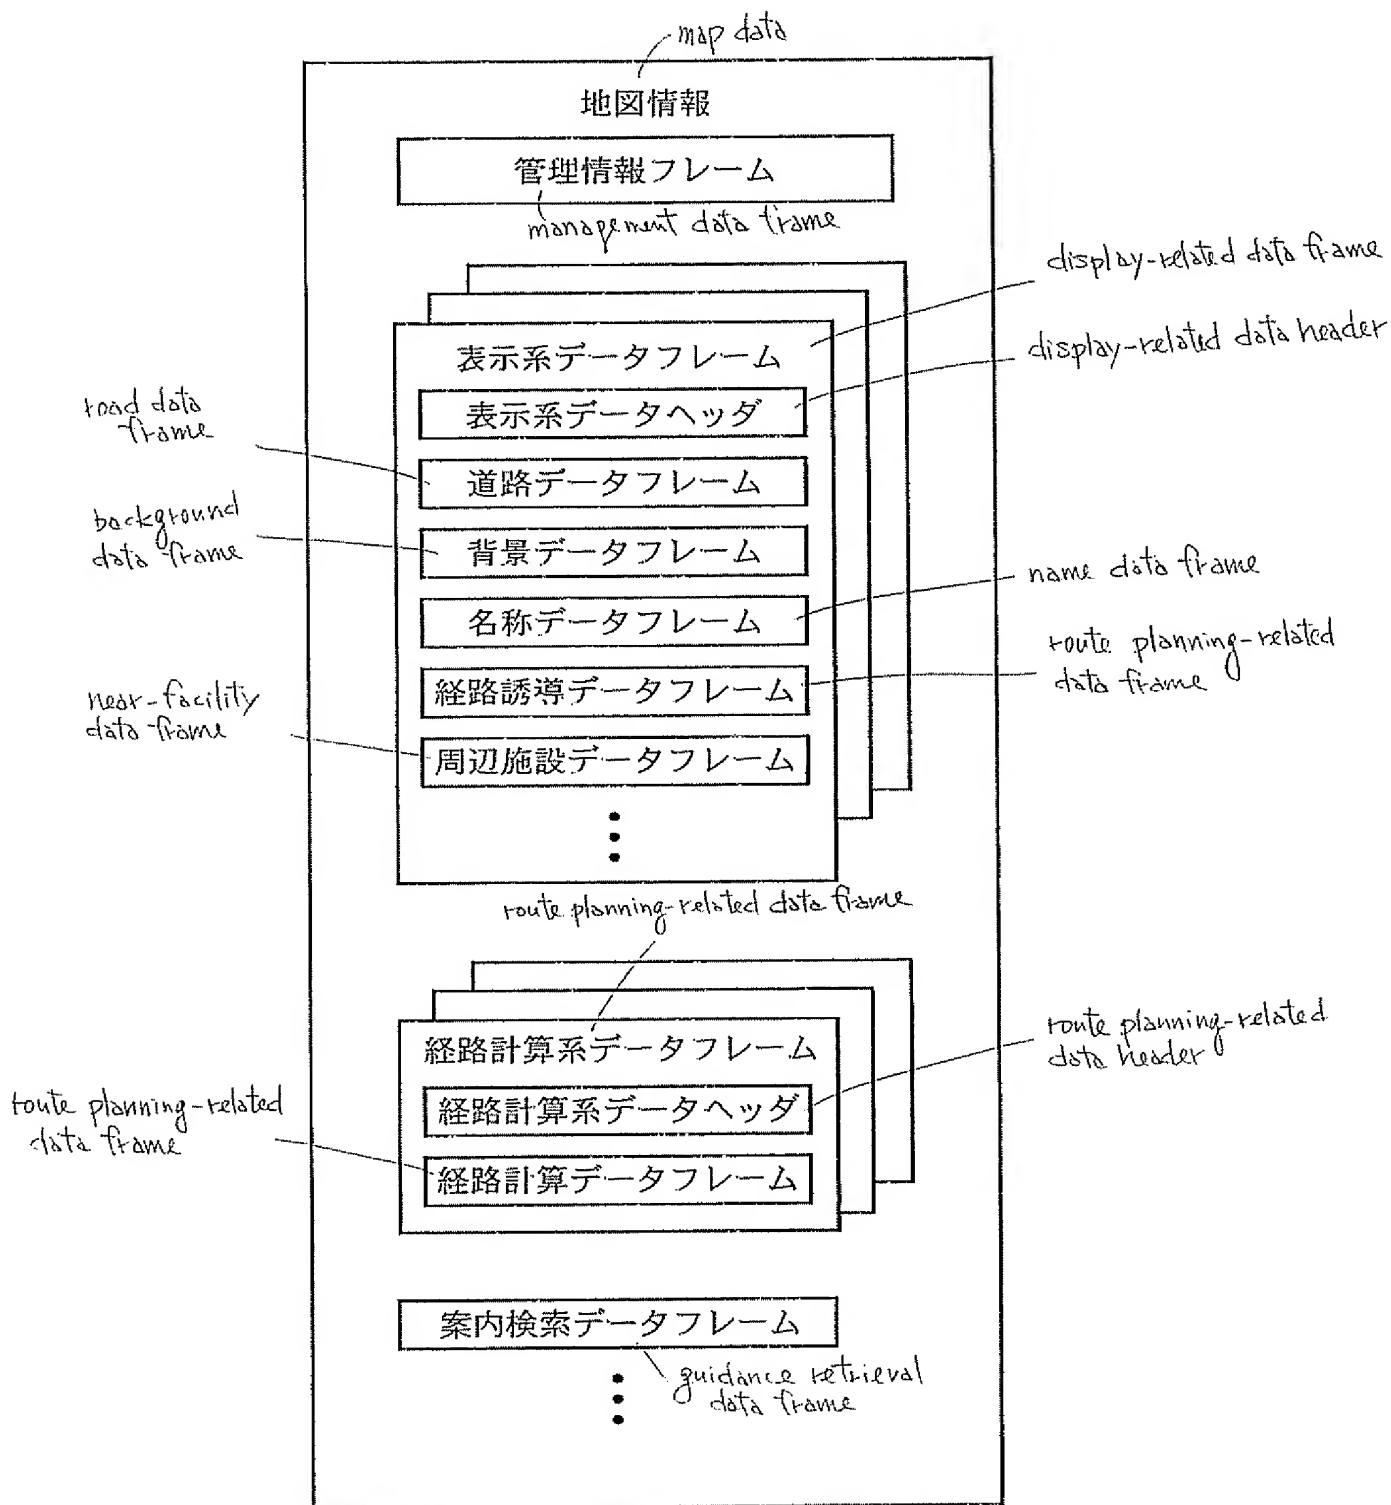 map data
地図情報
管理情報フレーム
management data frame
display-related data frame
表示系データフレーム
display-related data header
表示系データヘッダ
road data
frame
道路データフレーム
background
data frame
背景データフレーム
name data frame
名称データフレーム
route planning-related
data frame
経路誘導データフレーム
near-facility
data frame
周辺施設データフレーム
route planning-related data frame
経路計算系データフレーム
route planning-related
data header
経路計算系データヘッダ
route planning-related
data frame
経路計算データフレーム
案内検索データフレーム
guidance retrieval
data frame